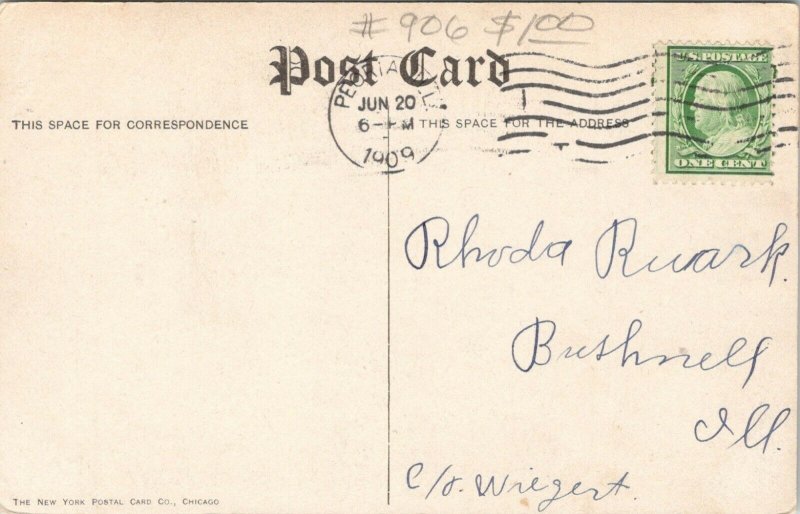 # 906 $1.00
Post Card
PEORIA
JUN 20
1909
U.S. POSTAGE
ONE CENT
THIS SPACE FOR CORRESPONDENCE
THIS SPACE FOR THE ADDRESS
Rhoda Ruark.
Bushnell
Ill.
c/o. Wiegert.
THE NEW YORK POSTAL CARD CO., CHICAGO